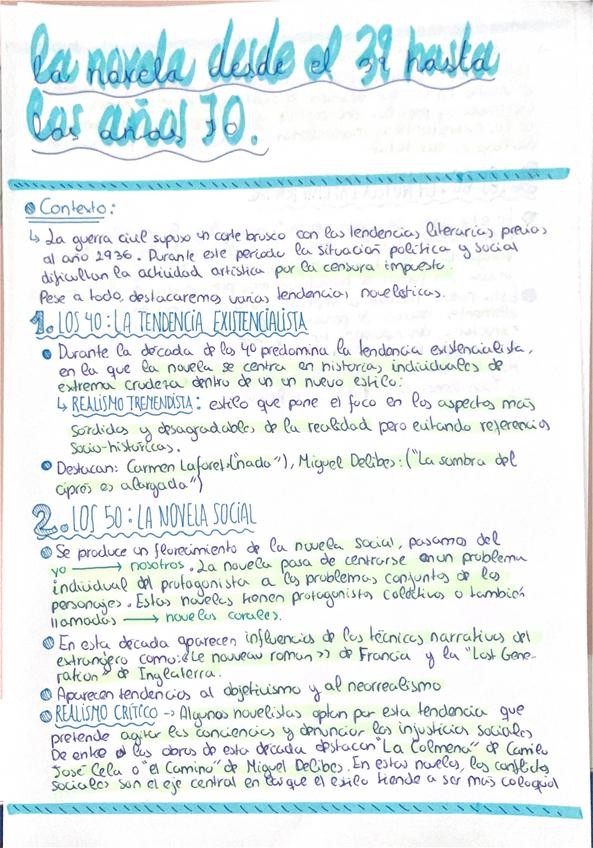 la novela desde el 39 hasta
los años 70.
Contexto:
↳ La guerra civil supuso un corte brusco con las tendencias literarias previas
al año 1936. Durante este período la situación política y social
dificultan la actividad artística por la censura impuesta.
Pese a todo, destacaremos varias tendencias novelísticas.
1. LOS 40: LA TENDENCIA EXISTENCIALISTA
Durante la década de los 40 predomina la tendencia existencialista,
en la que la novela se centra en historias individuales de
extrema crudeza dentro de un un nuevo estilo:
↳ REALISMO TREMENDISTA: estilo que pone el foco en los aspectos más
sórdidos y desagradables de la realidad pero evitando referencias
socio-históricas.
Destacan: Carmen Laforet ("nada"), Miguel Delibes: ("La sombra del
ciprés es alargada")
2. LOS 50: LA NOVELA SOCIAL
Se produce un florecimiento de la novela social, pasamos del
yo → nosotros. La novela pasa de centrarse en un problema
individual del protagonista a los problemas conjuntos de los
personajes. Estas novelas tienen protagonista colectivo o también
llamadas → novelas corales.
En esta década aparecen influencias de las técnicas narrativas del
extranjero como: «Le nouveau roman» de Francia y la "Lost Gene-
ration" de Inglaterra.
Aparecen tendencias al objetivismo y al neorrealismo
REALISMO CRÍTICO → Algunos novelistas optan por esta tendencia que
pretende agitar las conciencias y denunciar las injusticias sociales
De entre las obras de esta década destacan "La Colmena" de Camilo
José Cela o "el Camino" de Miguel Delibes. En estas novelas, los conflictos
sociales son el eje central en las que el estilo tiende a ser más coloquial